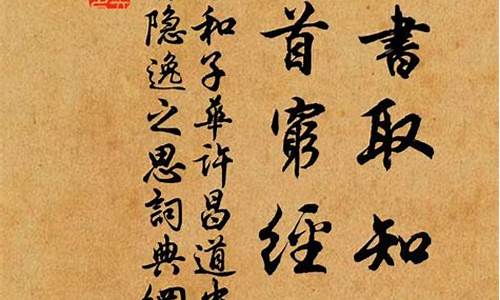 書取知
首窮經
和子華許昌道中
隐逸之思詞典網